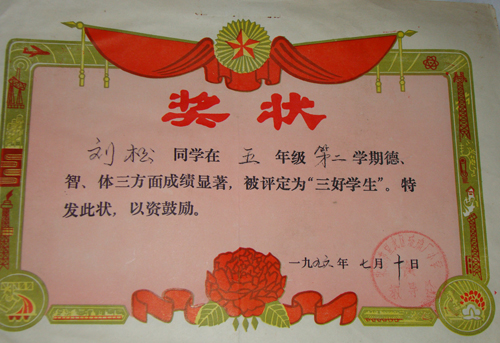 奖状
刘松 同学在 五 年级 第二 学期德、
智、体三方面成绩显著，被评定为“三好学生”。特
发此状，以资鼓励。
一九九六年 七月十日